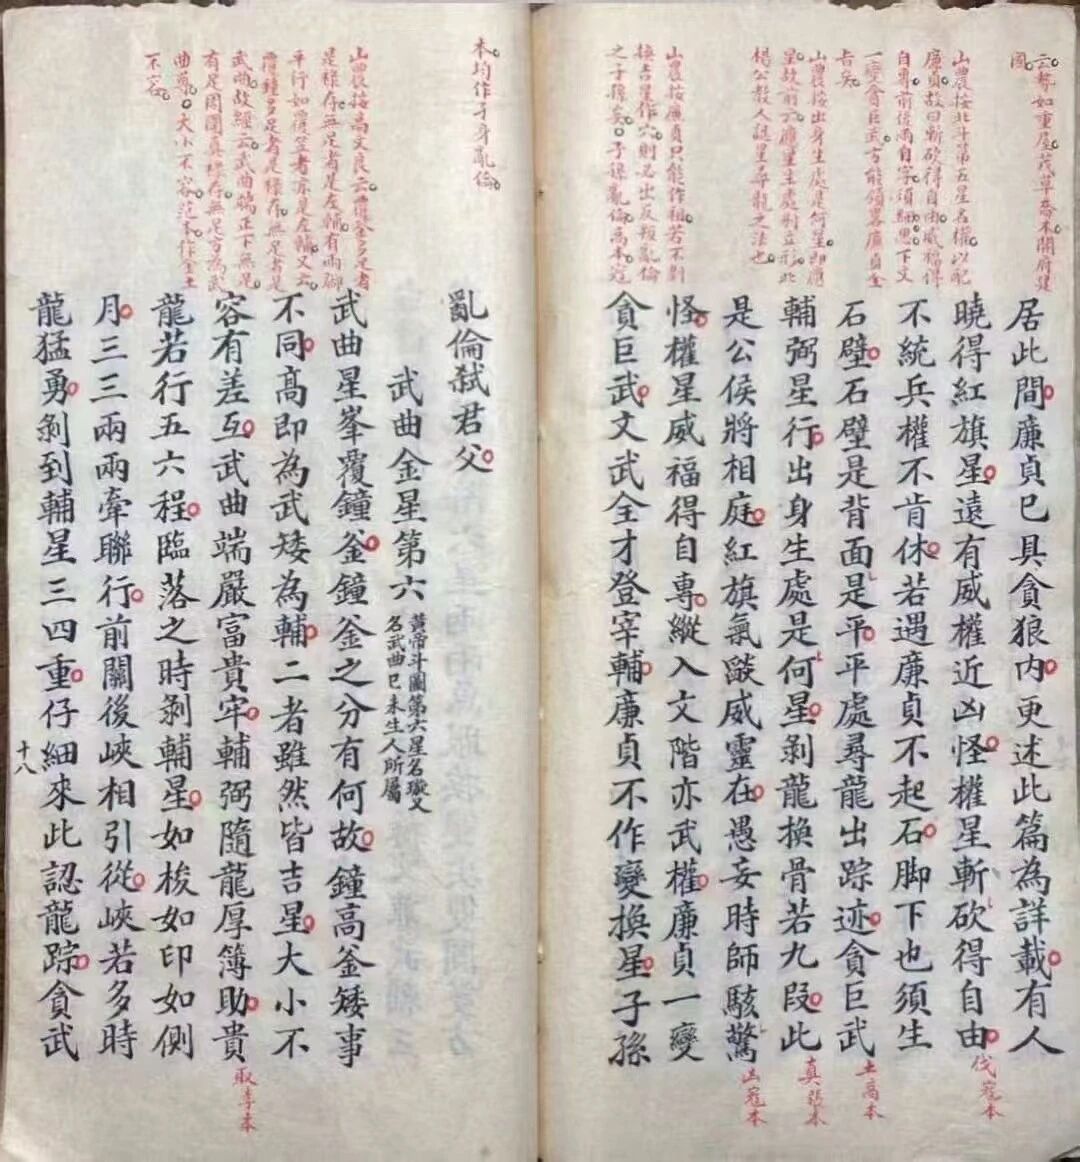 云舞如重屋茂草喬木開府建
國
山農按北斗第五星名權以配
廉貞故曰斬砍得自由威福得
自專前後兩自字須細思下文
一變貪巨武方能領畧廉貞全
旨矣
山農按出身生處是何星即應
星故前云應星生處別立形此
楊公教人謎星尋龍之法也
山農按廉貞只能作祖若不剝
換吉星作穴則必出反叛亂倫
之子孫矣子孫亂倫高本寇
本均作子身亂倫
居此間廉貞巳具貪狼內更述此篇為詳載有人
曉得紅旗星遠有威權近凶怪權星斬砍得自由
伐寇本
不統兵權不肯休若遇廉貞不起石脚下也須生
石壁石壁是背面是平平處尋龍出踪迹貪巨武
土高本
輔弼星行出身生處是何星剝龍換骨若九段此
真張本
是公侯將相庭紅旗氣燄威靈在愚妄時師駭驚
凶寇本
怪權星威福得自專縱入文階亦武權廉貞一變
貪巨武文武全才登宰輔廉貞不作變換星子孫
亂倫弒君父
山農按高文良云覆釜多足者
是祿存無足者是左輔有兩脚
平行如覆笠者亦是左輔又云
覆鐘多足者是祿存無足者是
武曲故經云武曲端正下無足
有足周圍真祿存無足方為武
曲尊大小不容范本作全土
不容
武曲金星第六
黃帝斗圖第六星名璇又
名武曲巳未生人所屬
武曲星峯覆鐘釜鐘釜之分有何故鐘高釜矮事
不同高即為武矮為輔二者雖然皆吉星大小不
容有差互武曲端嚴富貴牢輔弼隨龍厚簿助貴
取李本
龍若行五六程臨落之時剝輔星如梭如印如側
月三三兩兩牽聯行前關後峽相引從峽若多時
龍猛勇剝到輔星三四重仔細來此認龍踪貪武
十八